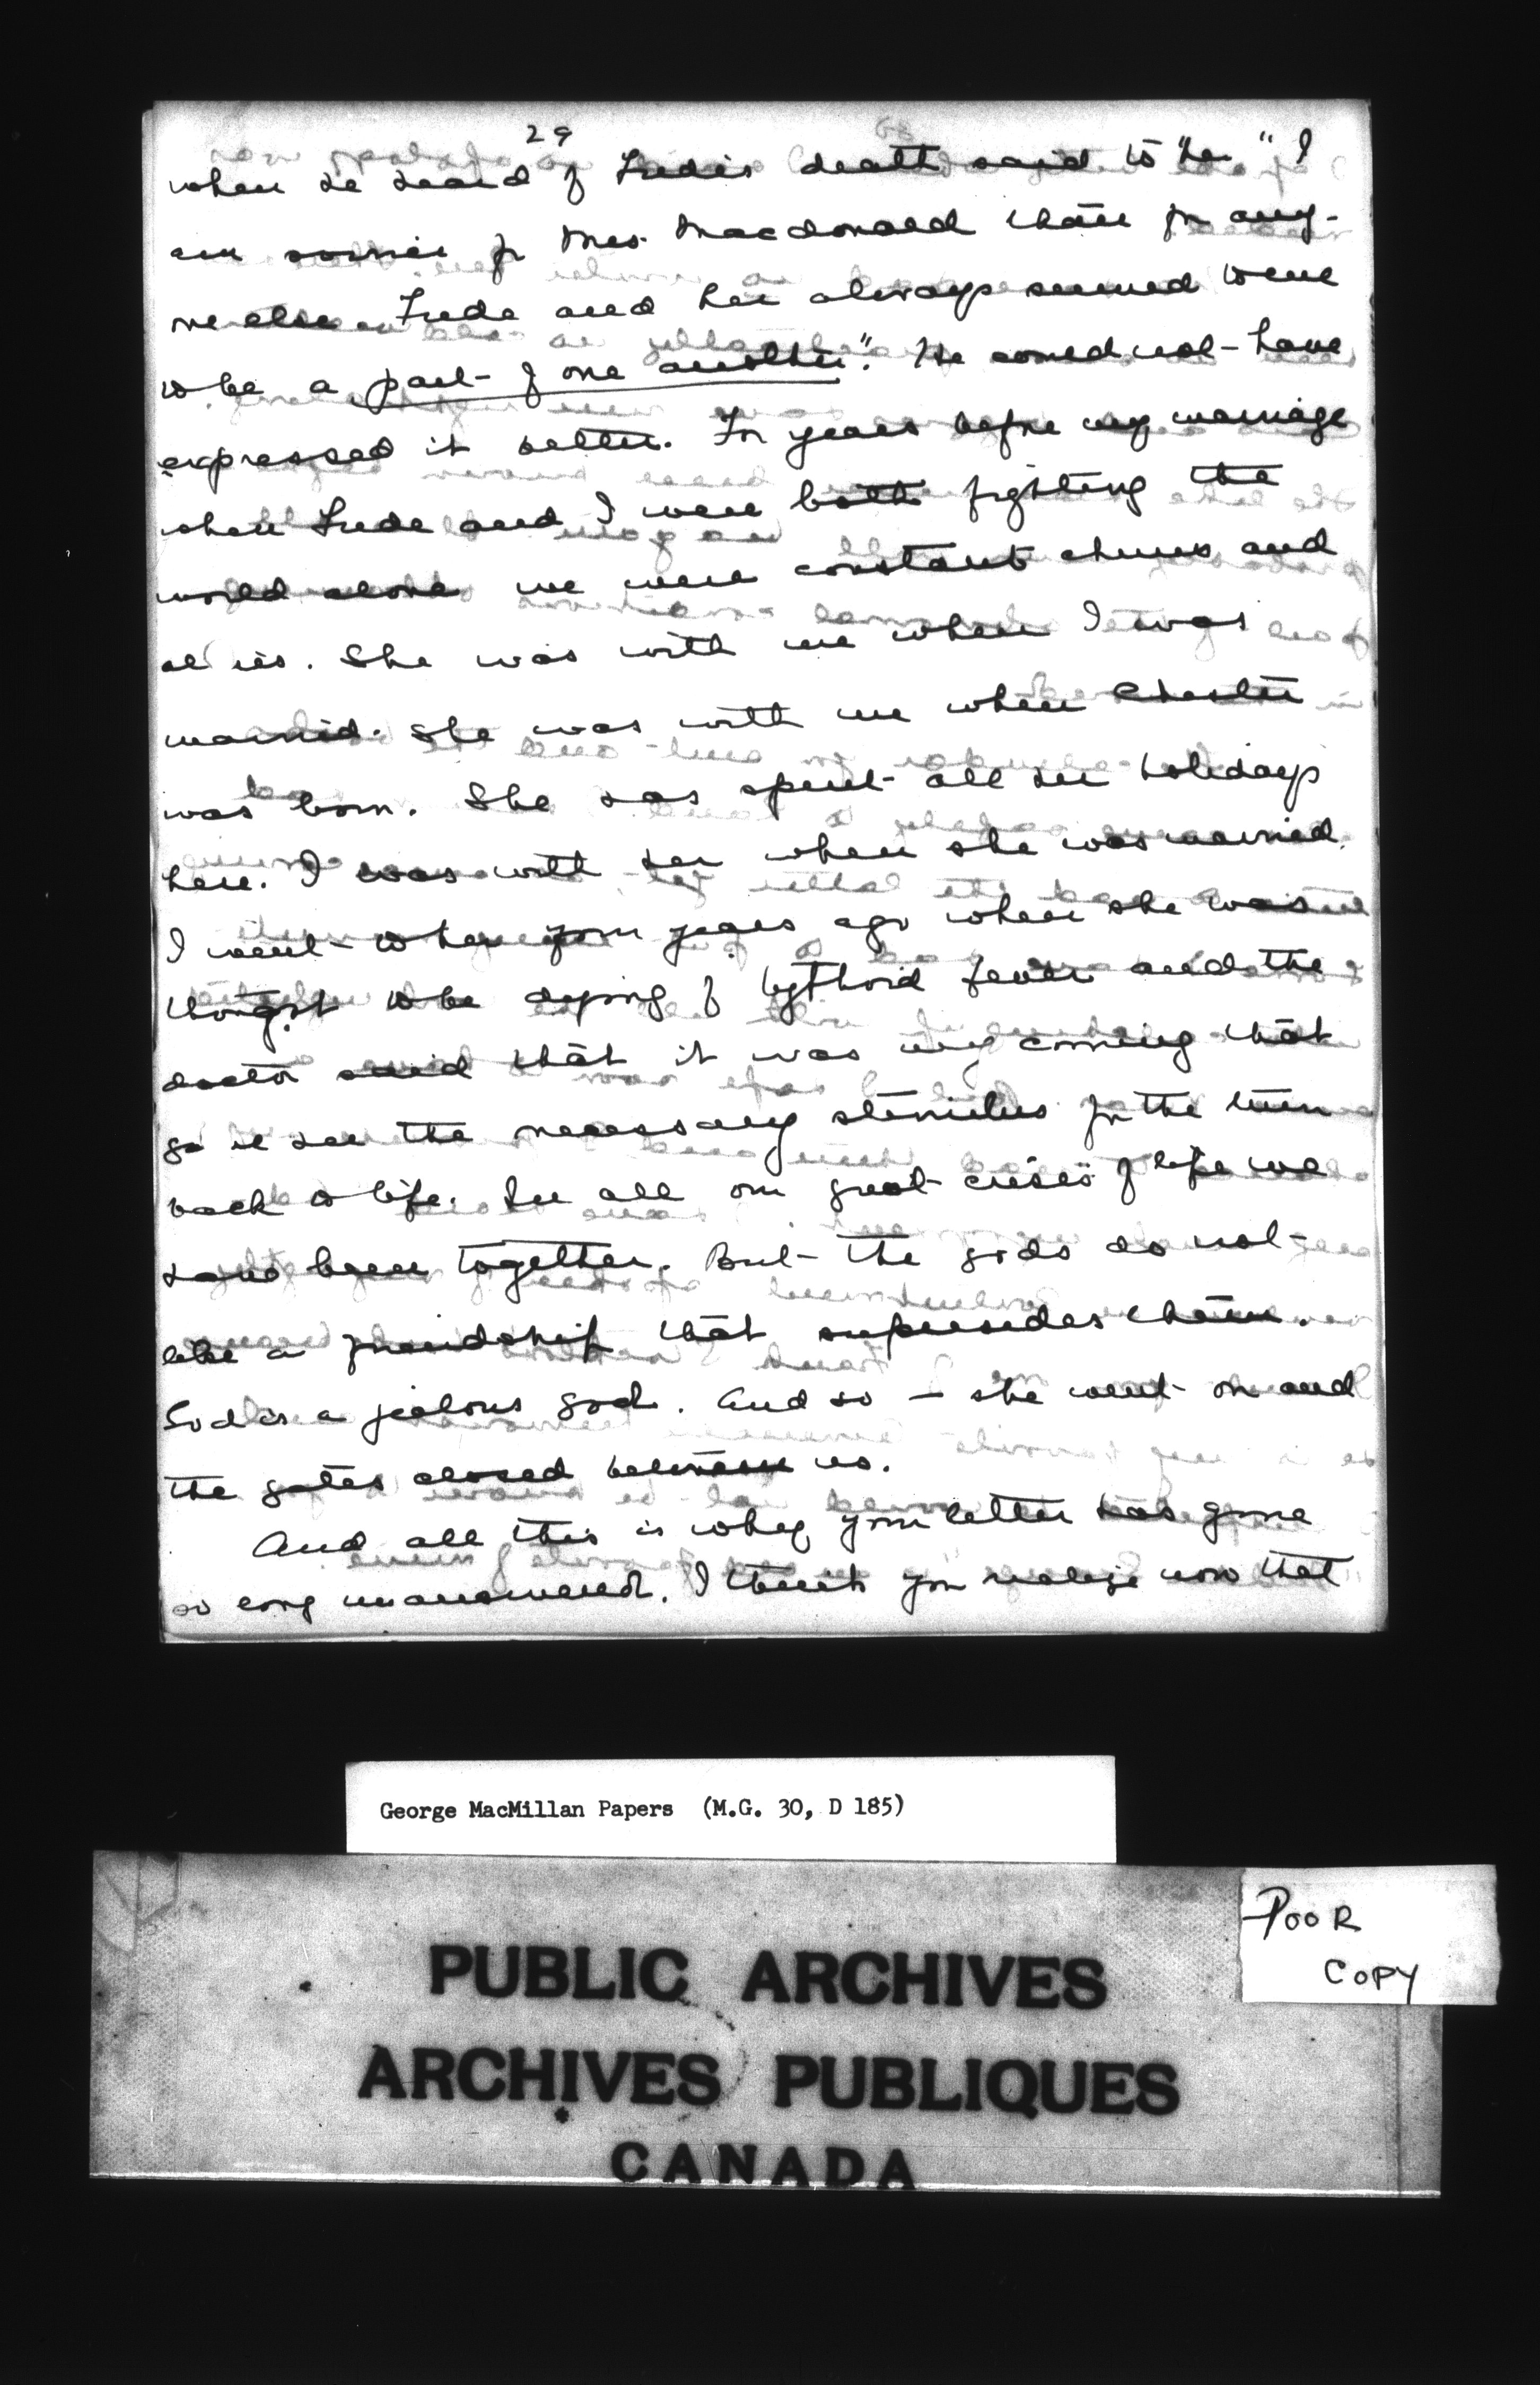 29
when he heard of Frede's death said to "he "I
am sorrier for Mrs. Macdonald than for any-
one else. Frede and her always seemed to me
to be a part of one another". He could not have
expressed it better. For years before my marriage
when Frede and I were both fighting the
world alone we were constant chums and
allies. She was with me when I was
married. She was with me when Chester
was born. She has spent all her holidays
here. I was with her when she was married.
I went to her four years ago when she was
thought to be dying of typhoid fever and the
doctor said that it was my coming that
gave her the necessary stimulus for the turn
back to life. In all our great crises of life we
have been together. But the gods do not
like a friendship that supersedes them.
God is a jealous god. And so — she went on and
the gates closed between us.
And all this is why your letter has gone
so long unanswered. I think you realize now that
George MacMillan Papers (M.G. 30, D 185)
POOR
COPY
PUBLIC ARCHIVES
ARCHIVES PUBLIQUES
CANADA